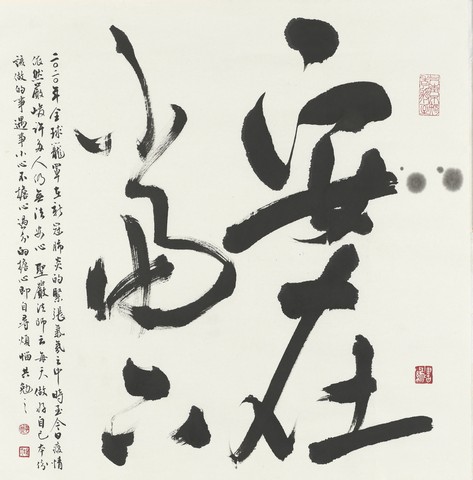 安在
當下
二〇二〇年全球籠罩在新冠肺炎的緊張氣氛之中時至今日疫情
依然嚴峻許多人仍無法安心聖嚴法師云每天做好自己本份
該做的事遇事小心不擔心過分的擔心即自尋煩惱共勉之